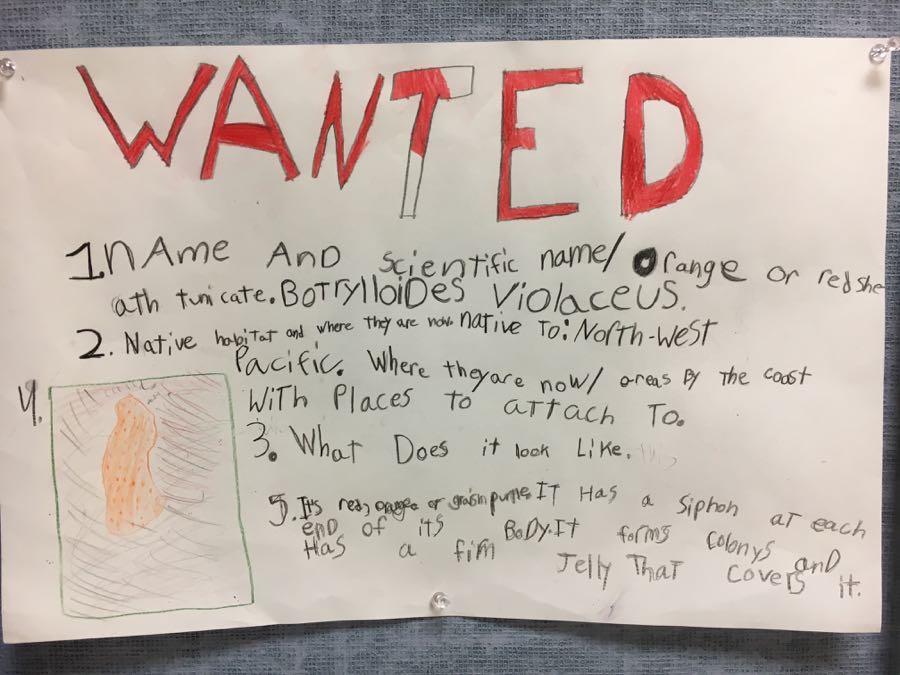 WANTED
1 nAme AnD scientific name/ Orange or red she
ath tunicate. BoTrylloiDes ViolaceuS.
2. Native habitat and where they are now native To: North-west
Pacific. Where they are now/ areas By the coast
WiTh Places To aTTach To.
3. What Does it look Like.
4.
5. It's red, orange or purple. IT Has a siphon at each
end of its BoDy. It forms colonys and
Has a firm Jelly ThaT covers it.